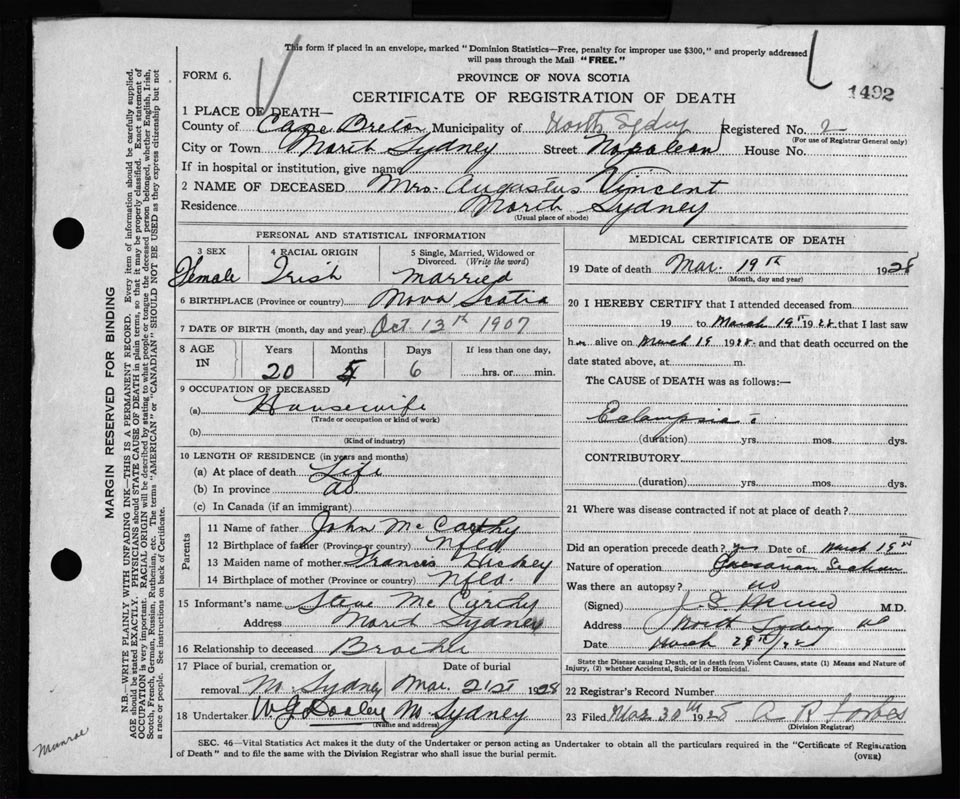 This form if placed in an envelope, marked "Dominion Statistics—Free, penalty for improper use $300," and properly addressed
will pass through the Mail "FREE."
FORM 6.
PROVINCE OF NOVA SCOTIA
1492
CERTIFICATE OF REGISTRATION OF DEATH
1 PLACE OF DEATH—
County of Cape Breton Municipality of North Sydney Registered No. 2
(For use of Registrar General only)
City or Town North Sydney Street Napolean House No.
If in hospital or institution, give name
2 NAME OF DECEASED Mrs. Augustus Vincent
Residence North Sydney
(Usual place of abode)
PERSONAL AND STATISTICAL INFORMATION
3 SEX Female
4 RACIAL ORIGIN Irish
5 Single, Married, Widowed or Divorced. (Write the word) Married
6 BIRTHPLACE (Province or country) Nova Scotia
7 DATE OF BIRTH (month, day and year) Oct 13th 1907
8 AGE IN Years 20 Months 5 Days 6 If less than one day, hrs. or min.
9 OCCUPATION OF DECEASED
(a) Housewife
(Trade or occupation or kind of work)
(b)
(Kind of industry)
10 LENGTH OF RESIDENCE (in years and months)
(a) At place of death Life
(b) In province do
(c) In Canada (if an immigrant)
Parents
11 Name of father John McCarthy
12 Birthplace of father (Province or country) Nfld.
13 Maiden name of mother Francis Hickey
14 Birthplace of mother (Province or country) Nfld.
15 Informant's name Steve McCarthy
Address North Sydney
16 Relationship to deceased
17 Place of burial, cremation or removal N. Sydney Date of burial Mar. 21st 1928
18 Undertaker W J Dooley N Sydney
(Name and address)
MEDICAL CERTIFICATE OF DEATH
19 Date of death Mar. 19th 1928
(Month, day and year)
20 I HEREBY CERTIFY that I attended deceased from
19 to March 19th 1928 that I last saw
her alive on March 19 1928 and that death occurred on the
date stated above, at m.
The CAUSE of DEATH was as follows:—
Eclampsia
(duration) yrs. mos. dys.
CONTRIBUTORY
(duration) yrs. mos. dys.
21 Where was disease contracted if not at place of death?
Did an operation precede death? yes Date of March 19th
Nature of operation Caesarian Section
Was there an autopsy? no
(Signed) M.D.
Address North Sydney
Date March 29th/28
State the Disease causing Death, or in death from Violent Causes, state (1) Means and Nature of
Injury, (2) whether Accidental, Suicidal or Homicidal.
22 Registrar's Record Number
23 Filed Mar 30th 1928 A R Forbes
(Division Registrar)
SEC. 46—Vital Statistics Act makes it the duty of the Undertaker or person acting as Undertaker to obtain all the particulars required in the "Certificate of Registration
of Death" and to file the same with the Division Registrar who shall issue the burial permit.
(OVER)
MARGIN RESERVED FOR BINDING
N.B.—WRITE PLAINLY WITH UNFADING INK—THIS IS A PERMANENT RECORD. Every item of information should be carefully supplied.
AGE should be stated EXACTLY. PHYSICIANS should STATE CAUSE OF DEATH in plain terms, so that it may be properly classified. Exact statement of
OCCUPATION is very important. RACIAL ORIGIN will be described by stating to what people or tongue the deceased person belonged, whether English, Irish,
Scotch, French, German, Russian, Ruthenian, etc. The terms "AMERICAN" or "CANADIAN" SHOULD NOT BE USED as they express citizenship but not
a race or people. See instructions on back of Certificate.
Munroe